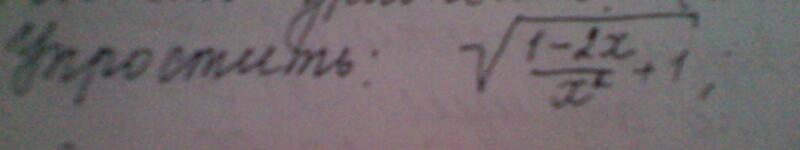 Упростить: √((1-2x)/x² + 1),